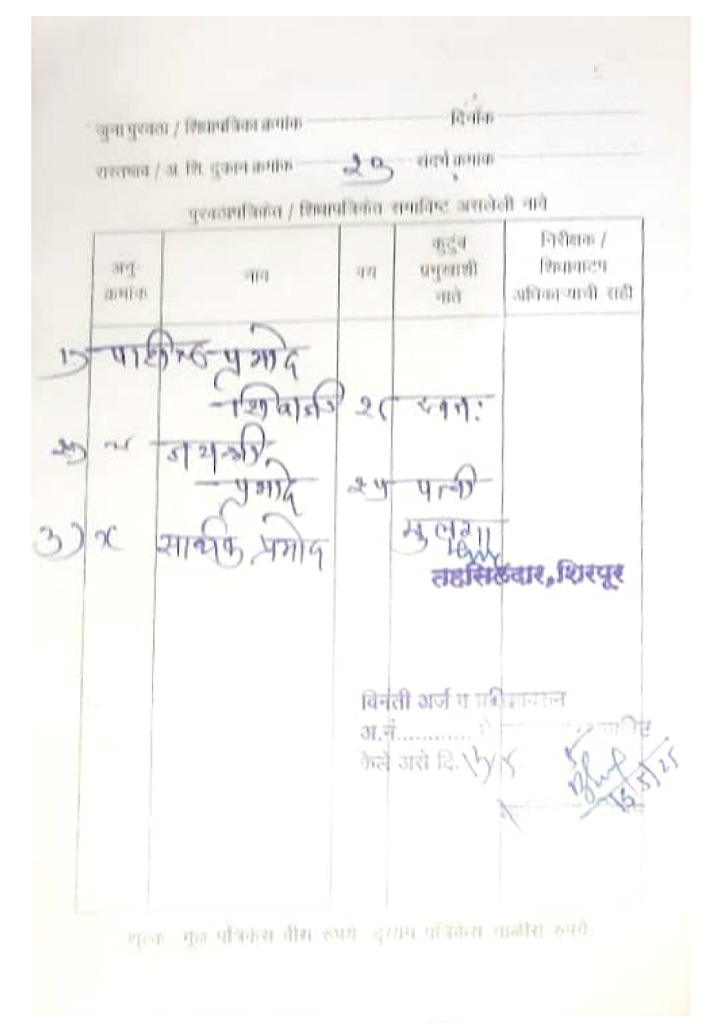 जुना पुरवठा / शिधापत्रिका क्रमांक दिनांक
रास्तभाव / अ. शि. दुकान क्रमांक संदर्भ क्रमांक
पुरवठापत्रिकेत / शिधापत्रिकेत समाविष्ट असलेली नावे
अनु- क्रमांक
नाव
वय
कुटुंब प्रमुखाशी नाते
निरीक्षक / शिधावाटप अधिकाऱ्याची सही
१) पाटील प्रमोद
शिवाजी २८ स्वतः
२) जयश्री
प्रमोद २५ पत्नी
३) सार्थक प्रमोद मुलगा
तहसिलदार, शिरपूर
विनंती अर्ज व प्रतिज्ञावरुन
अ.नं............
केले असे दि.
15/5/25
शुल्क मूळ पत्रिकेस वीस रुपये दुय्यम पत्रिकेस चाळीस रुपये